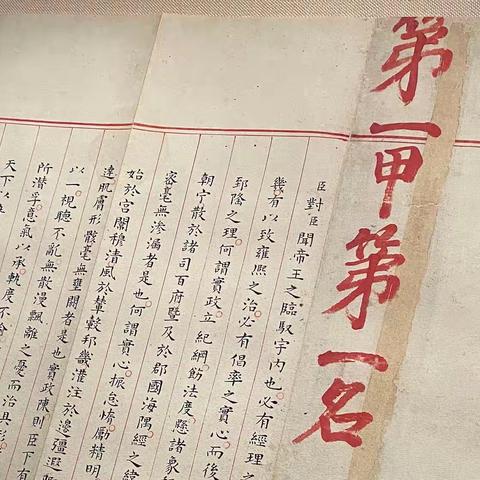 第一甲第一名
臣對臣聞帝王之臨馭宇內也必有經理之
幾有以致雍熙之治必有倡率之實心而後
郅隆之理何謂實政立紀綱飭法度懸諸象
朝宁散於諸司百府暨及於郡國海隅經之緯
密毫無滲漏者是也何謂實心振怠惰勵精明
始於宮闈穆清風於輦轂邦畿灌注於邊疆遐
達肌膚形骸毫無壅閼者是也實政陳則臣下有
以一視聽不亂無散漫飄離之憂而治具彰
所潛孚意氣以承軌度不
天下以